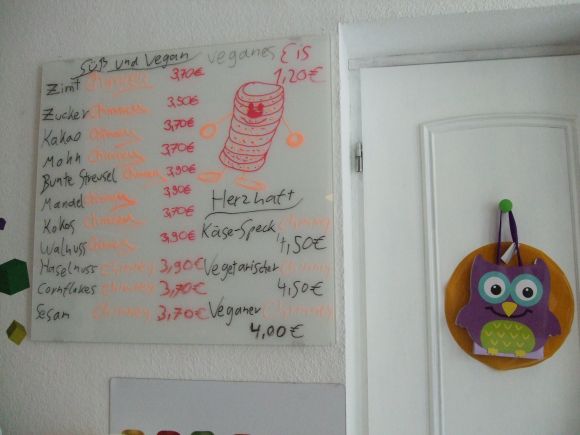 Süß und Vegan
Zimt Chimney 3,70€
Zucker Chimney 3,50€
Kakao Chimney 3,70€
Mohn Chimney 3,70€
Bunte Streusel Chimney 3,90€
Mandel Chimney 3,90€
Kokos Chimney 3,70€
Walnuss Chimney 3,90€
Haselnuss Chimney 3,90€
Cornflakes Chimney 3,70€
Sesam Chimney 3,70€
veganes Eis
1,20€
Herzhaft
Käse-Speck Chimney
4,50€
Vegetarischer Chimney
4,50€
Veganer Chimney
4,00€